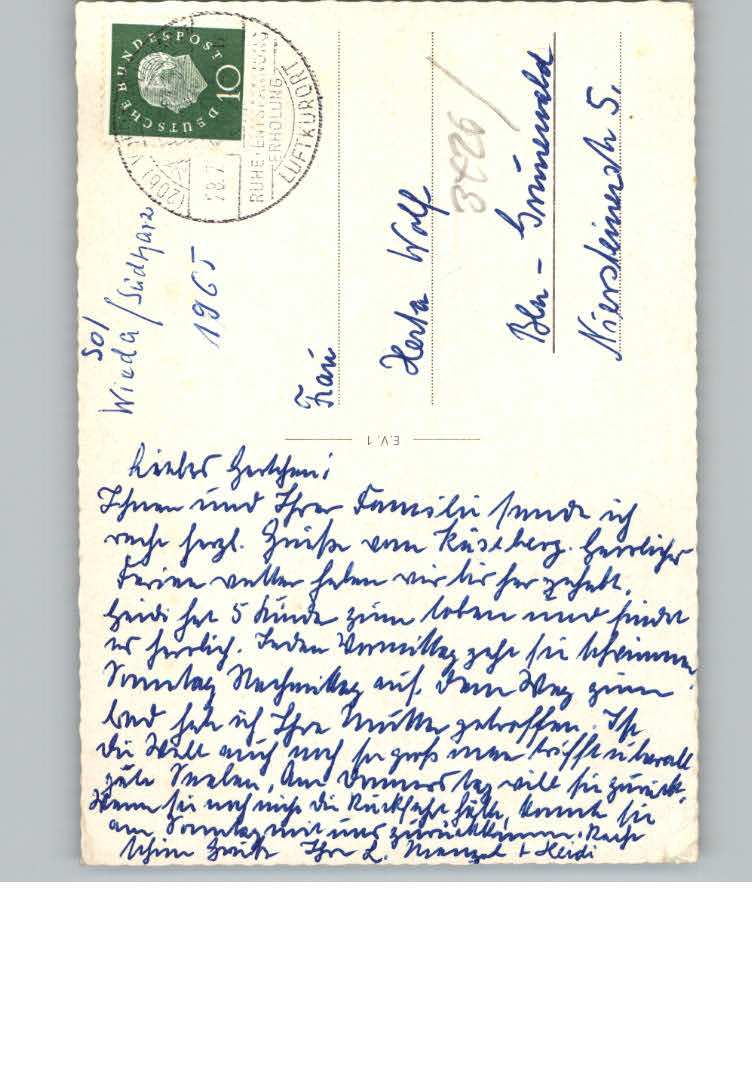 DEUTSCHE BUNDESPOST
10
(20b)
28.7
RUHE · ENTSPANNUNG
ERHOLUNG
LUFTKURORT
501
Wieda / Südharz
1965
3426
Frau
Herta Wolf
Bln - Grunewald
Niersteinerstr 5.
E.V. 1
Liebes Hertchen!
Ihnen und Ihrer Familie sende ich
recht herzl. Grüße vom Käseberg. Herrliches
Ferienwetter haben wir bisher gehabt.
Heidi hat 5 Hunde zum toben und findet
es herrlich. Jeden Vormittag geht sie schwimmen.
Sonntag Nachmittag auf dem Weg zum
Bad hab ich Ihre Mutter getroffen. Ist
die Welt auch noch so groß man trifft überall
gute Seelen. Am Donnerstag will sie zurück.
Wenn sie noch nicht die Rückfahrt hätte, konnte sie
am Sonntag mit uns zurückkommen. Recht
schöne Grüße Ihre L. Menzel + Heidi